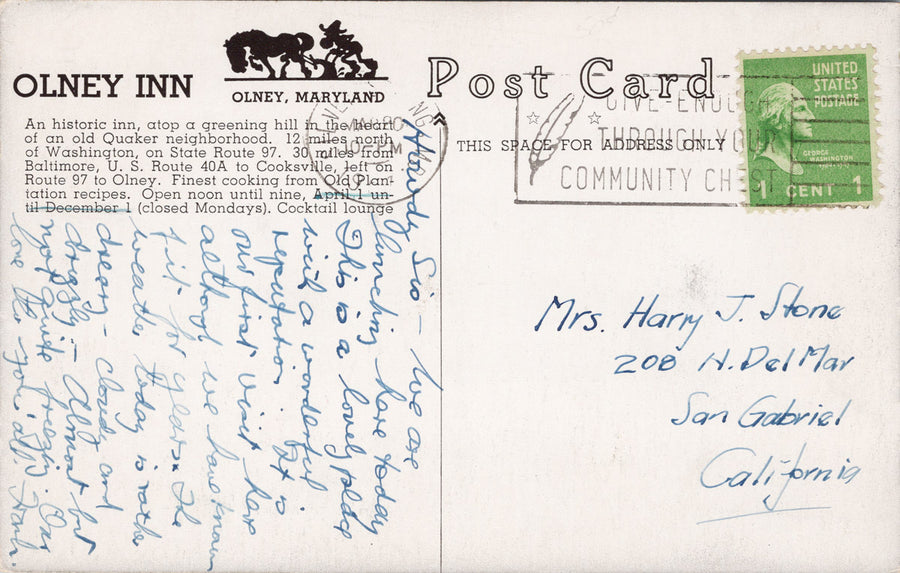 OLNEY INN
OLNEY, MARYLAND
An historic inn, atop a greening hill in the heart
of an old Quaker neighborhood. 12 miles north
of Washington, on State Route 97. 30 miles from
Baltimore, U. S. Route 40A to Cooksville, left on
Route 97 to Olney. Finest cooking from Old Plan-
tation recipes. Open noon until nine, April 1 un-
til December 1 (closed Mondays). Cocktail lounge
Howdy Sis – We are
lunching here today
This is a lovely place
with a wonderful
reputation. It is
our first visit here
although we have known
of it for years. The
weather today is rather
dreary – cloudy and
drizzly – Almost but
not quite freezing. Our
love to you all. Frank.
Post Card
THIS SPACE FOR ADDRESS ONLY
GIVE ENOUGH
THROUGH YOUR
COMMUNITY CHEST
UNITED
STATES
POSTAGE
GEORGE
WASHINGTON
1 CENT 1
Mrs. Harry J. Stone
208 N. Del Mar
San Gabriel
California